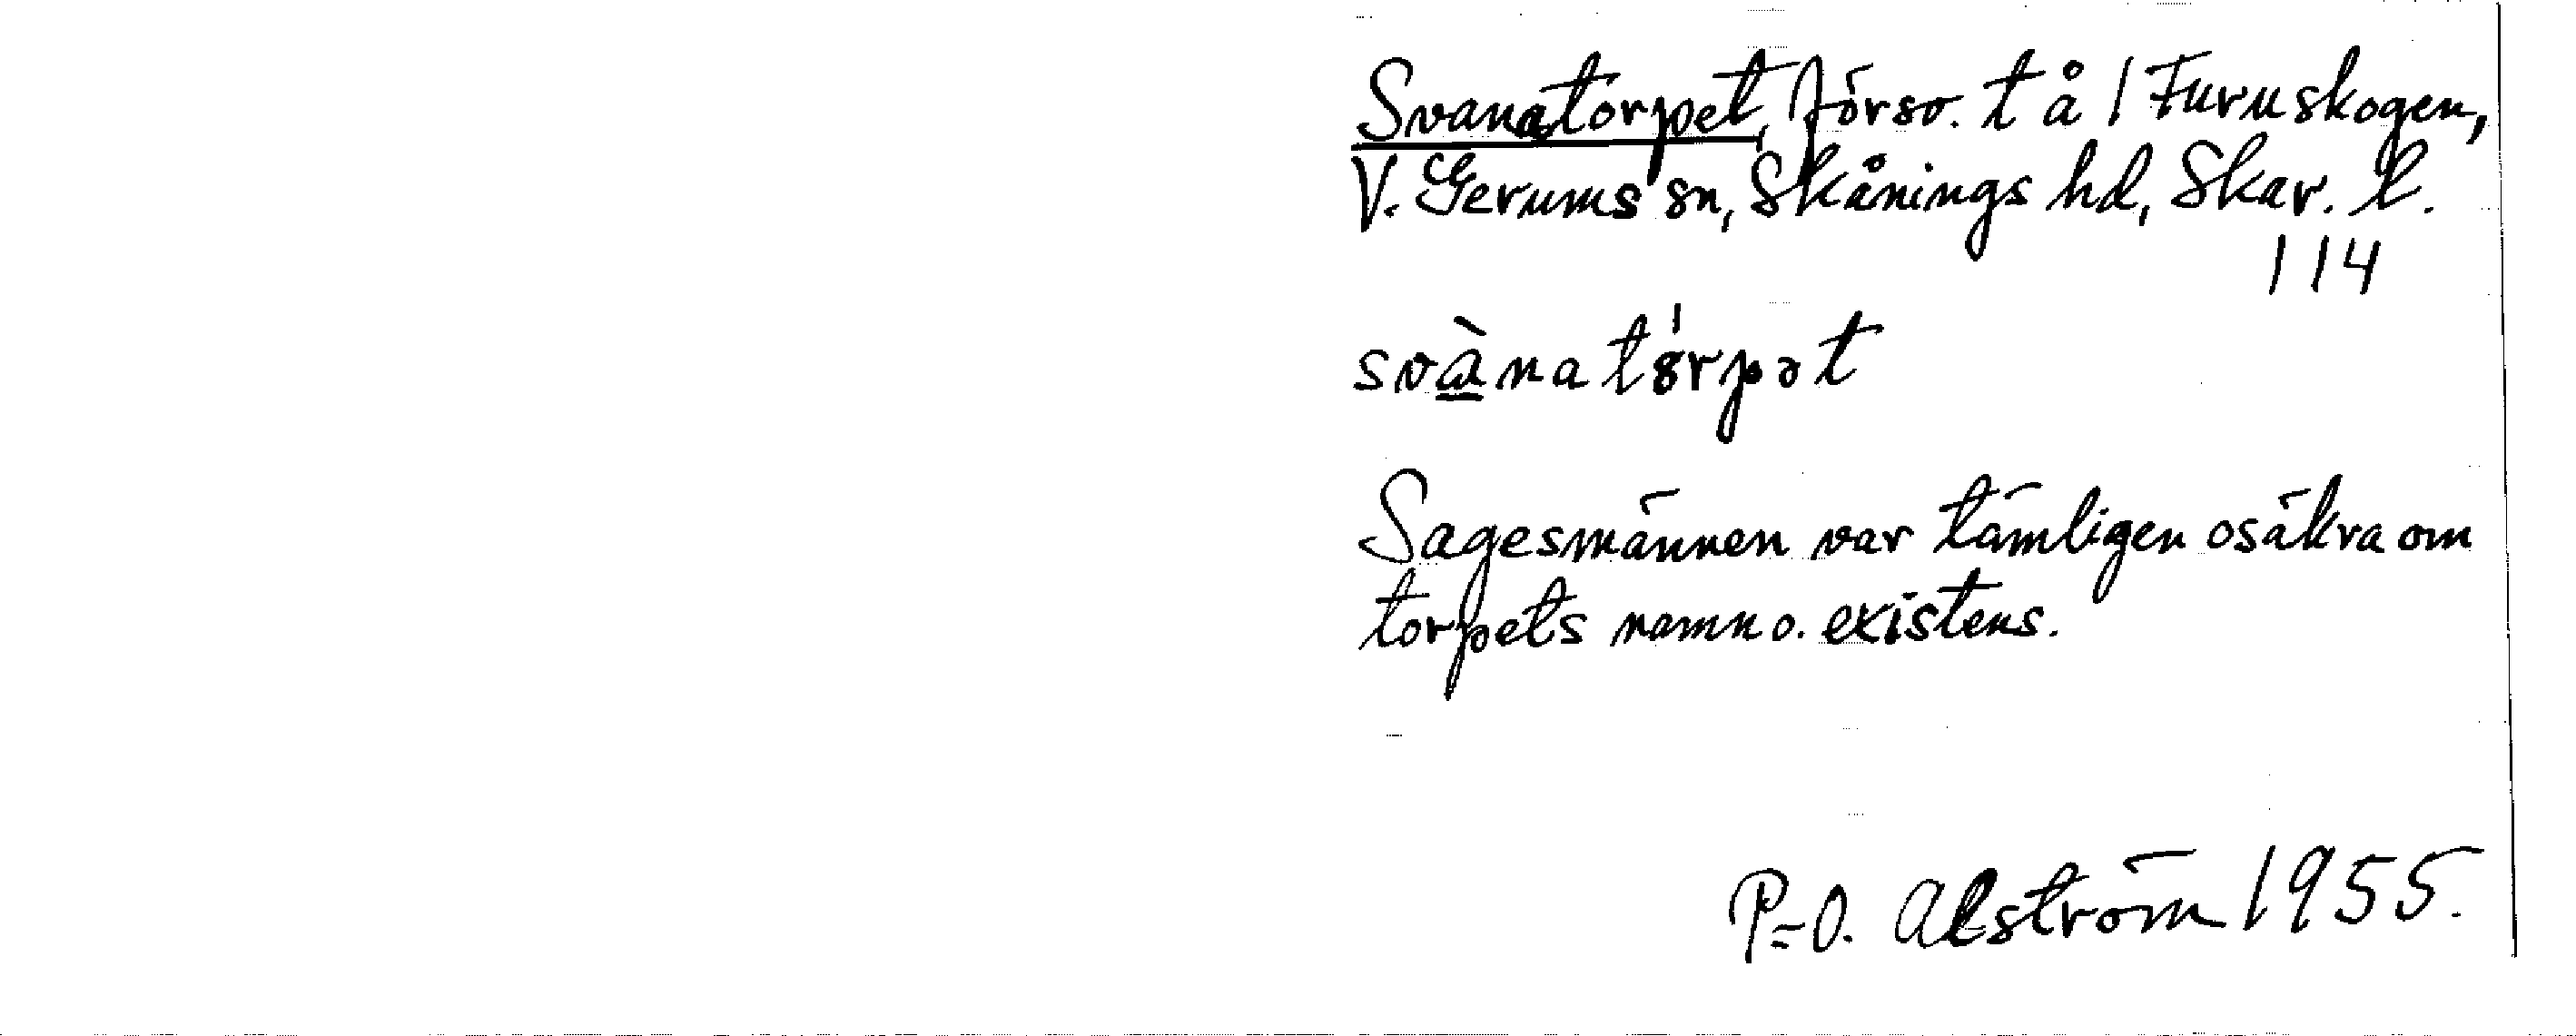 Svanatorpet, försv. t å 1 Furuskogen,
V. Gerums sn, Skånings hd, Skar. l.
114
svànatórpət
Sagesmännen var tämligen osäkra om
torpets namn o. existens.
P-O. Alström 1955.